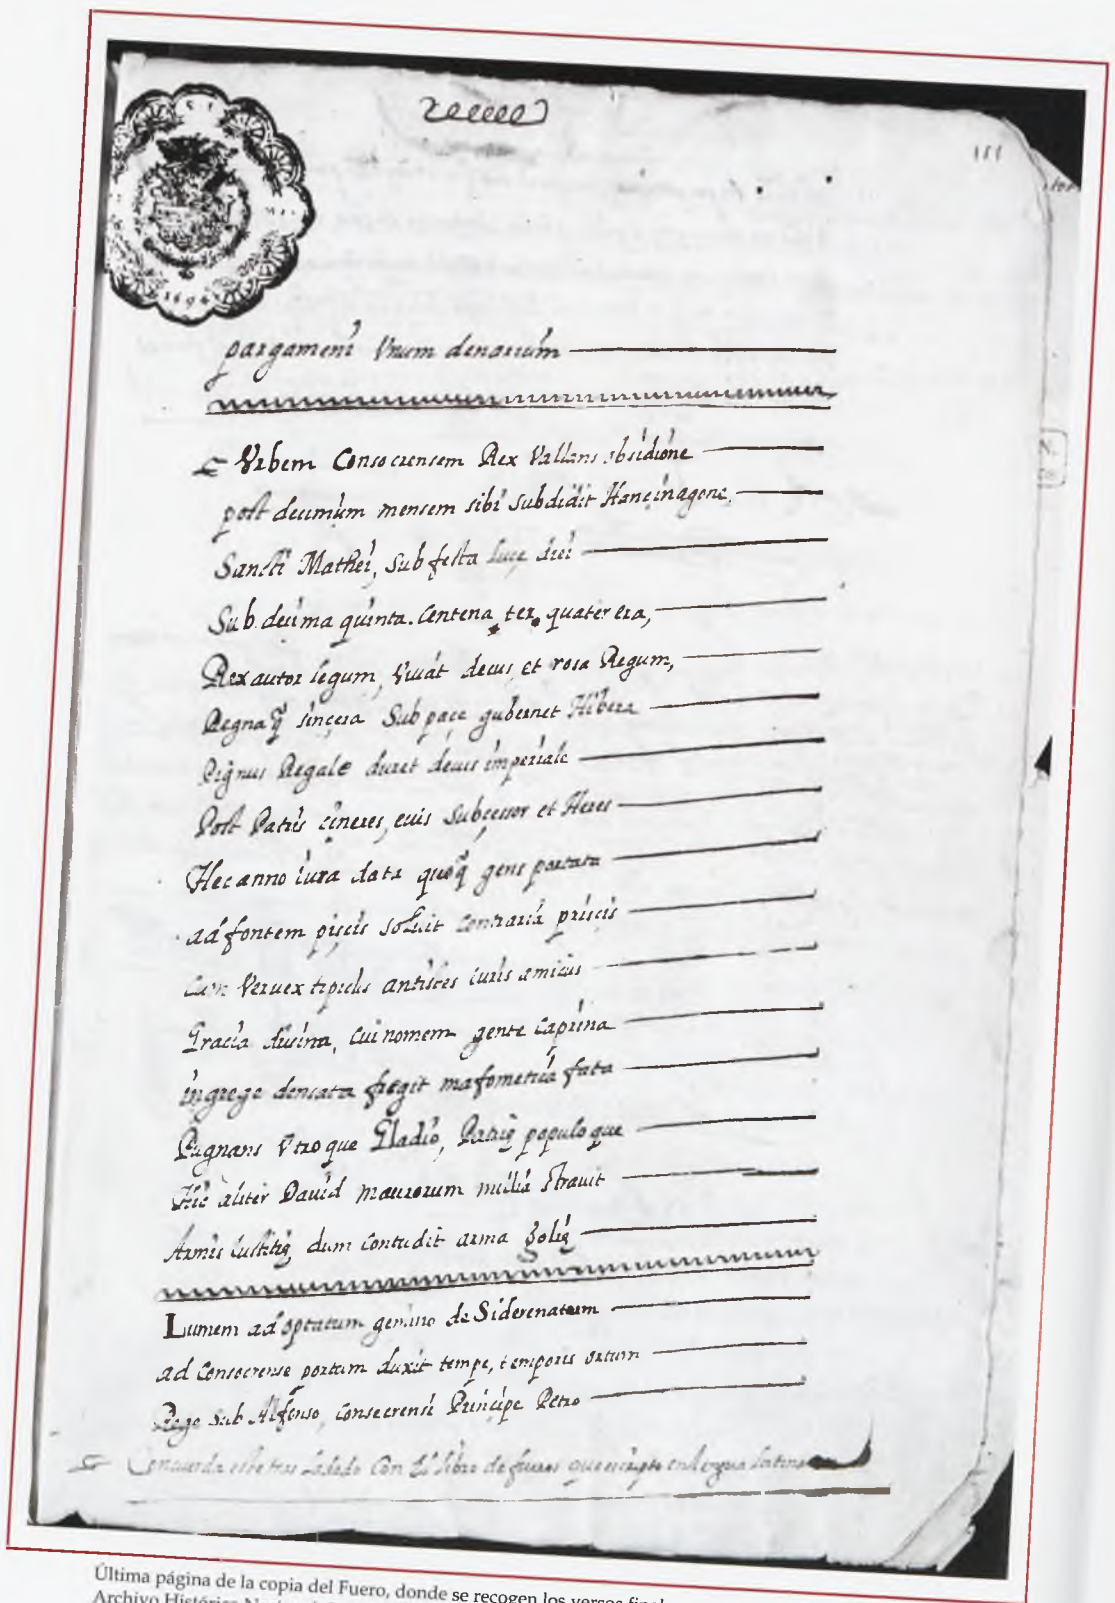 1694
151
pargameni Vnum denarium
Vrbem Consocrensem Rex Vallans obsidione
post decimum mensem sibi subdidit Hancinagone,
Sancti Mathei, sub festa luçe diei
Sub decima quinta. Centena, ter, quater era,
Rex autor legum, Viuat decus, et rosa Regum,
Regna q̃ sinçera Sub paçe gubernet Hibera
Pignus Regale duret decus imperiale
Post Patris çineres, euis Subçessor et Heres
Hec anno iura datr quoq̃ gens portata
ad fontem pisçis soluit contraria prisçis
Cum Veruex tipicus antistes iuris amicus
Gracia diuina, cui nomem gente caprina
in grege densata fregit mafometica fata
Pugnans Vtroque Gladio, Patrię populoque
Hic aliter Dauid maurorum millia strauit
Armis iustitię, dum contudit arma golię
Lumem ad optatum gemino de Siderenatum
ad Consocrense portum duxit tempe, temporis ortum
Rege sub Alfonso, Consecrensi Principe Petro
Concuerda este tras ladado Con El libro de fueros que escripto en lengua latina
Última página de la copia del Fuero, donde se recogen los versos
Archivo Histórico